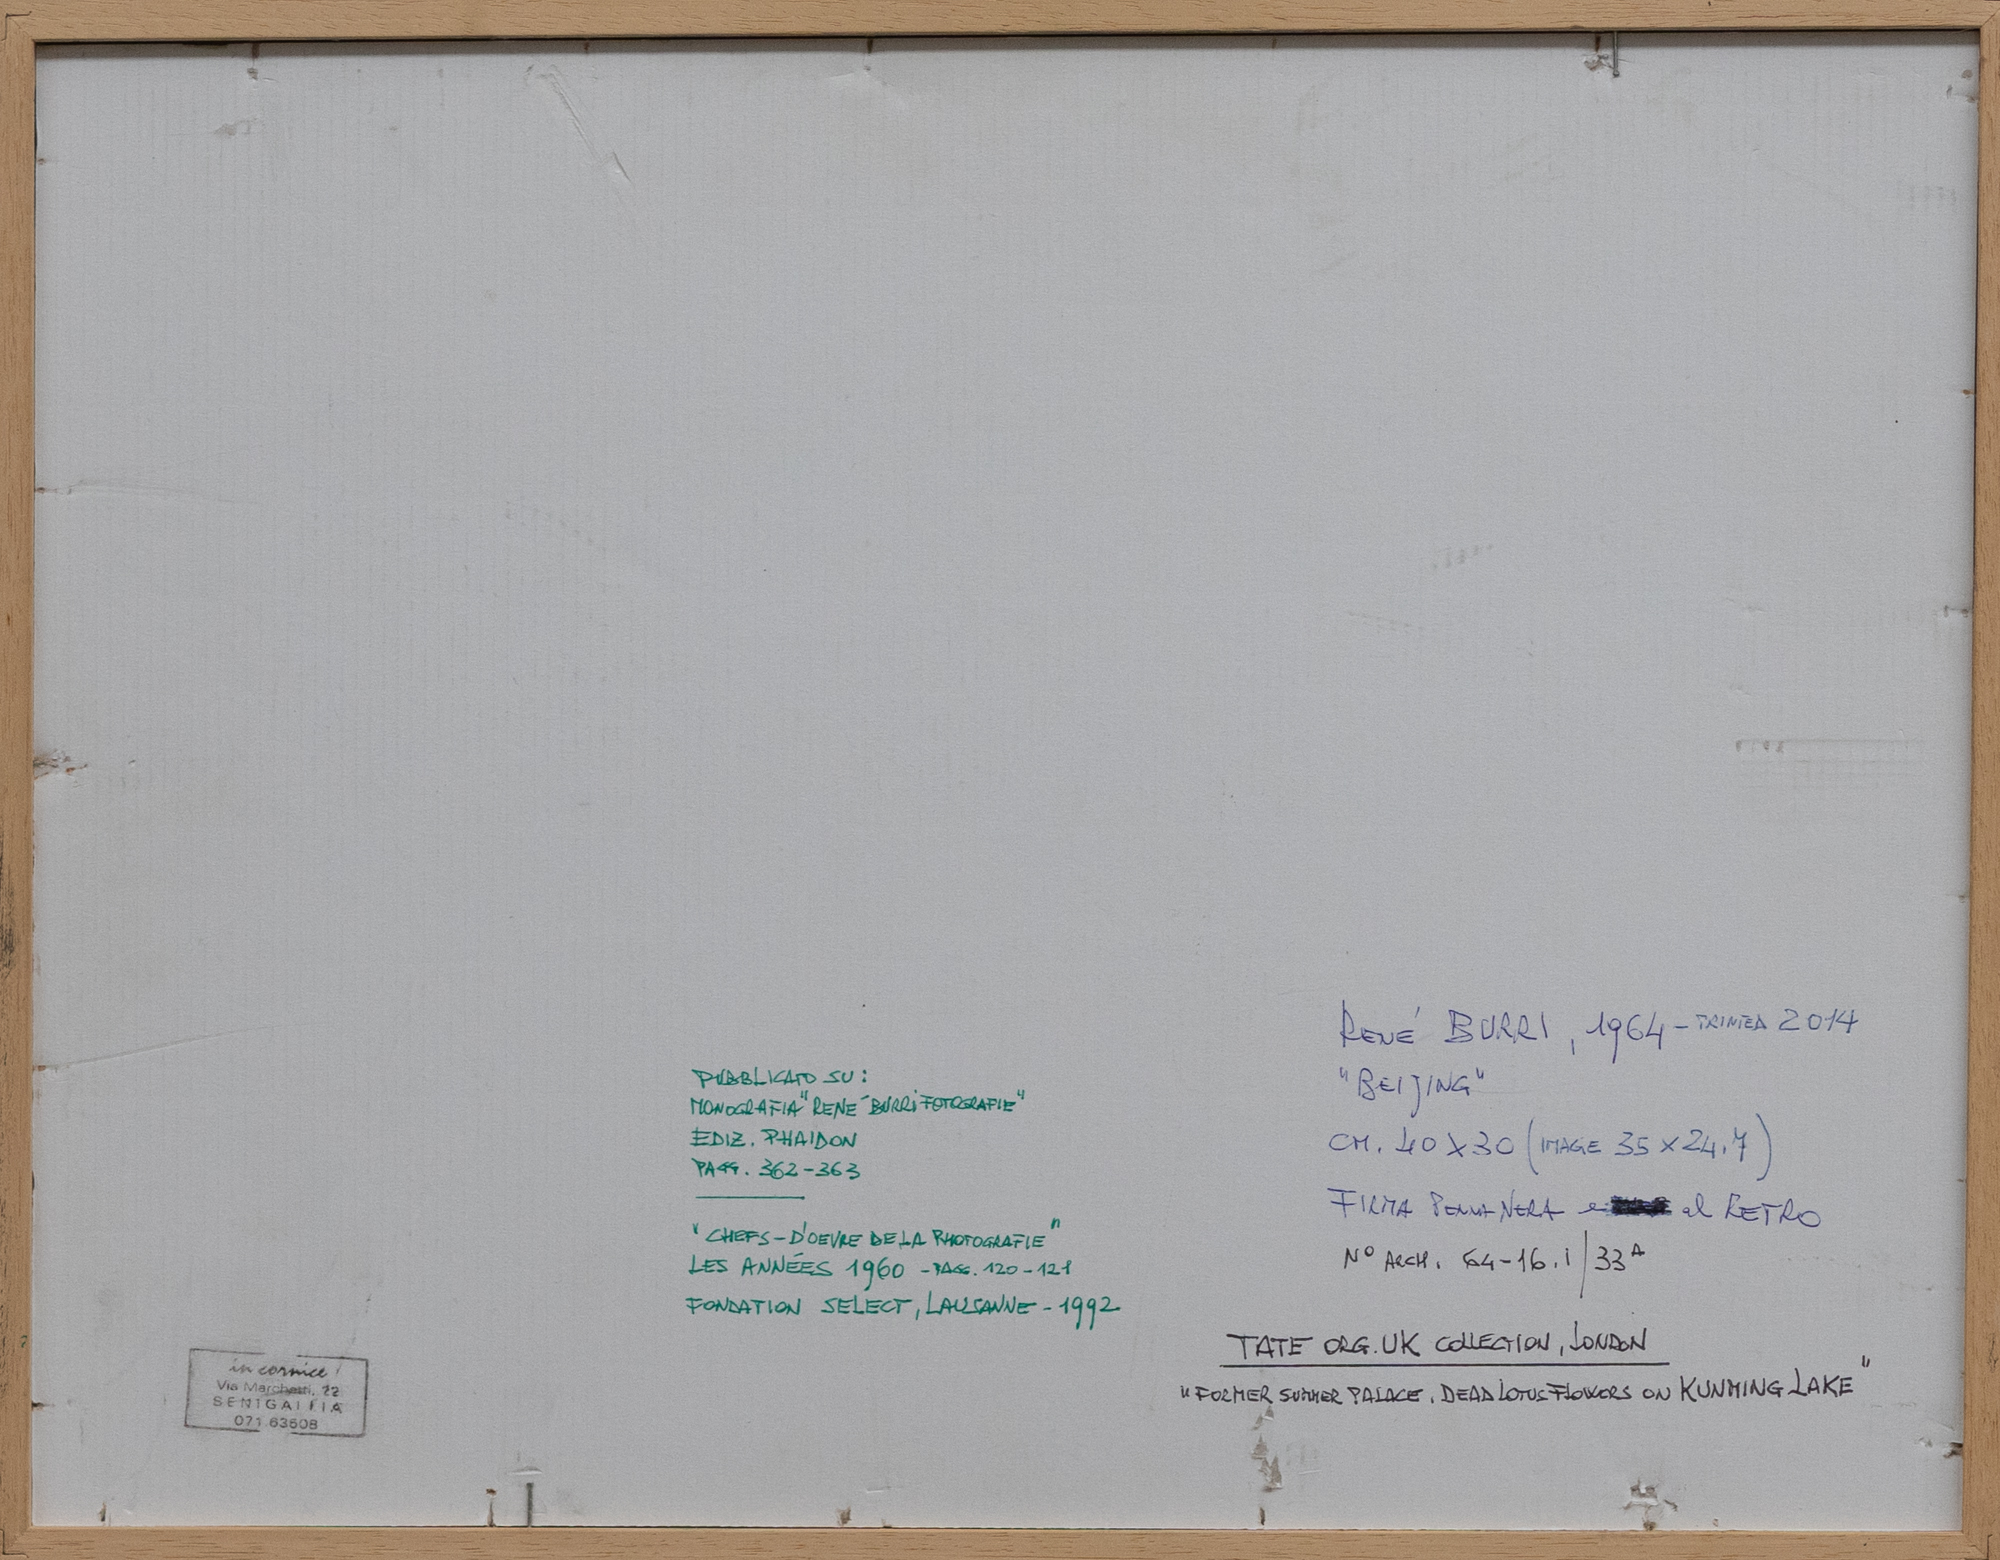 PUBBLICATO SU:
MONOGRAFIA "RENÉ BURRI FOTOGRAFIE"
EDIZ. PHAIDON
PAGG. 362-363
"CHEFS-D'OEVRE DE LA PHOTOGRAFIE"
LES ANNÉES 1960 - PAGG. 120-121
FONDATION SELECT, LAUSANNE - 1992
RENÉ BURRI, 1964 - PRINTED 2014
"BEIJING"
CM. 40 X 30 (IMAGE 35 X 24.7)
FIRMA PENNA NERA e al RETRO
N° ARCH. 64-16.i/33A
TATE ORG.UK COLLECTION, LONDON
"FORMER SUMMER PALACE. DEAD LOTUS FLOWERS ON KUNMING LAKE"
in cornice
Via Marchetti, 22
SENIGALLIA
071.63508